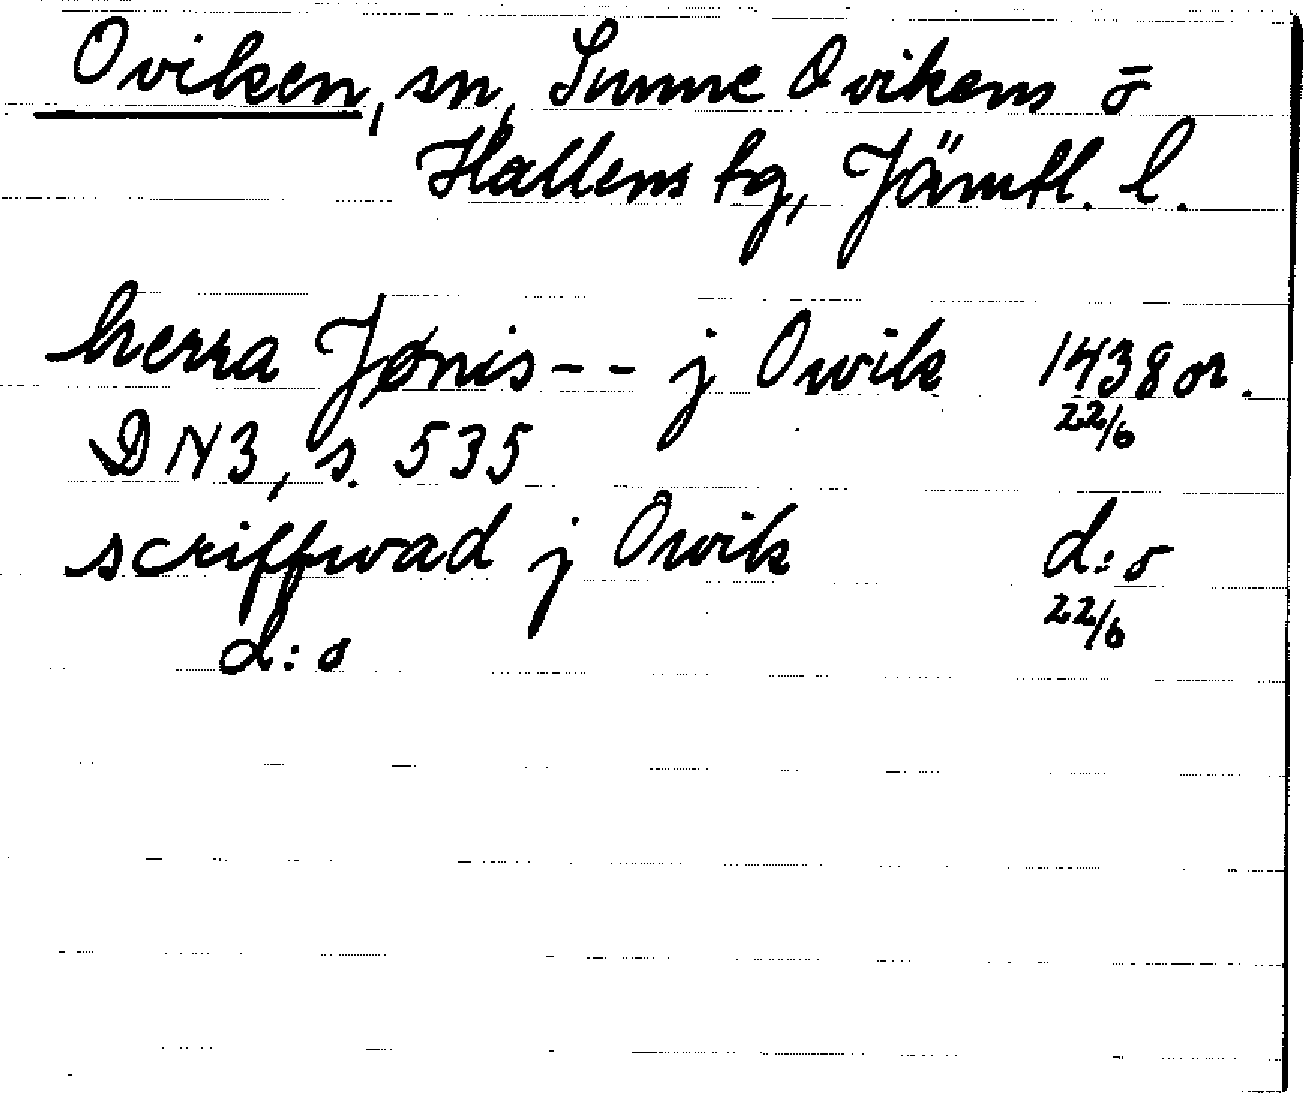 Oviken, sn, Sunne Ovikens o
Hallens tg, Jämtl. l.
herra Jønis -- j Owik 1438 or.
22/6
DN 3, s. 535
scriffwad j Owik d:o
22/6
d:o